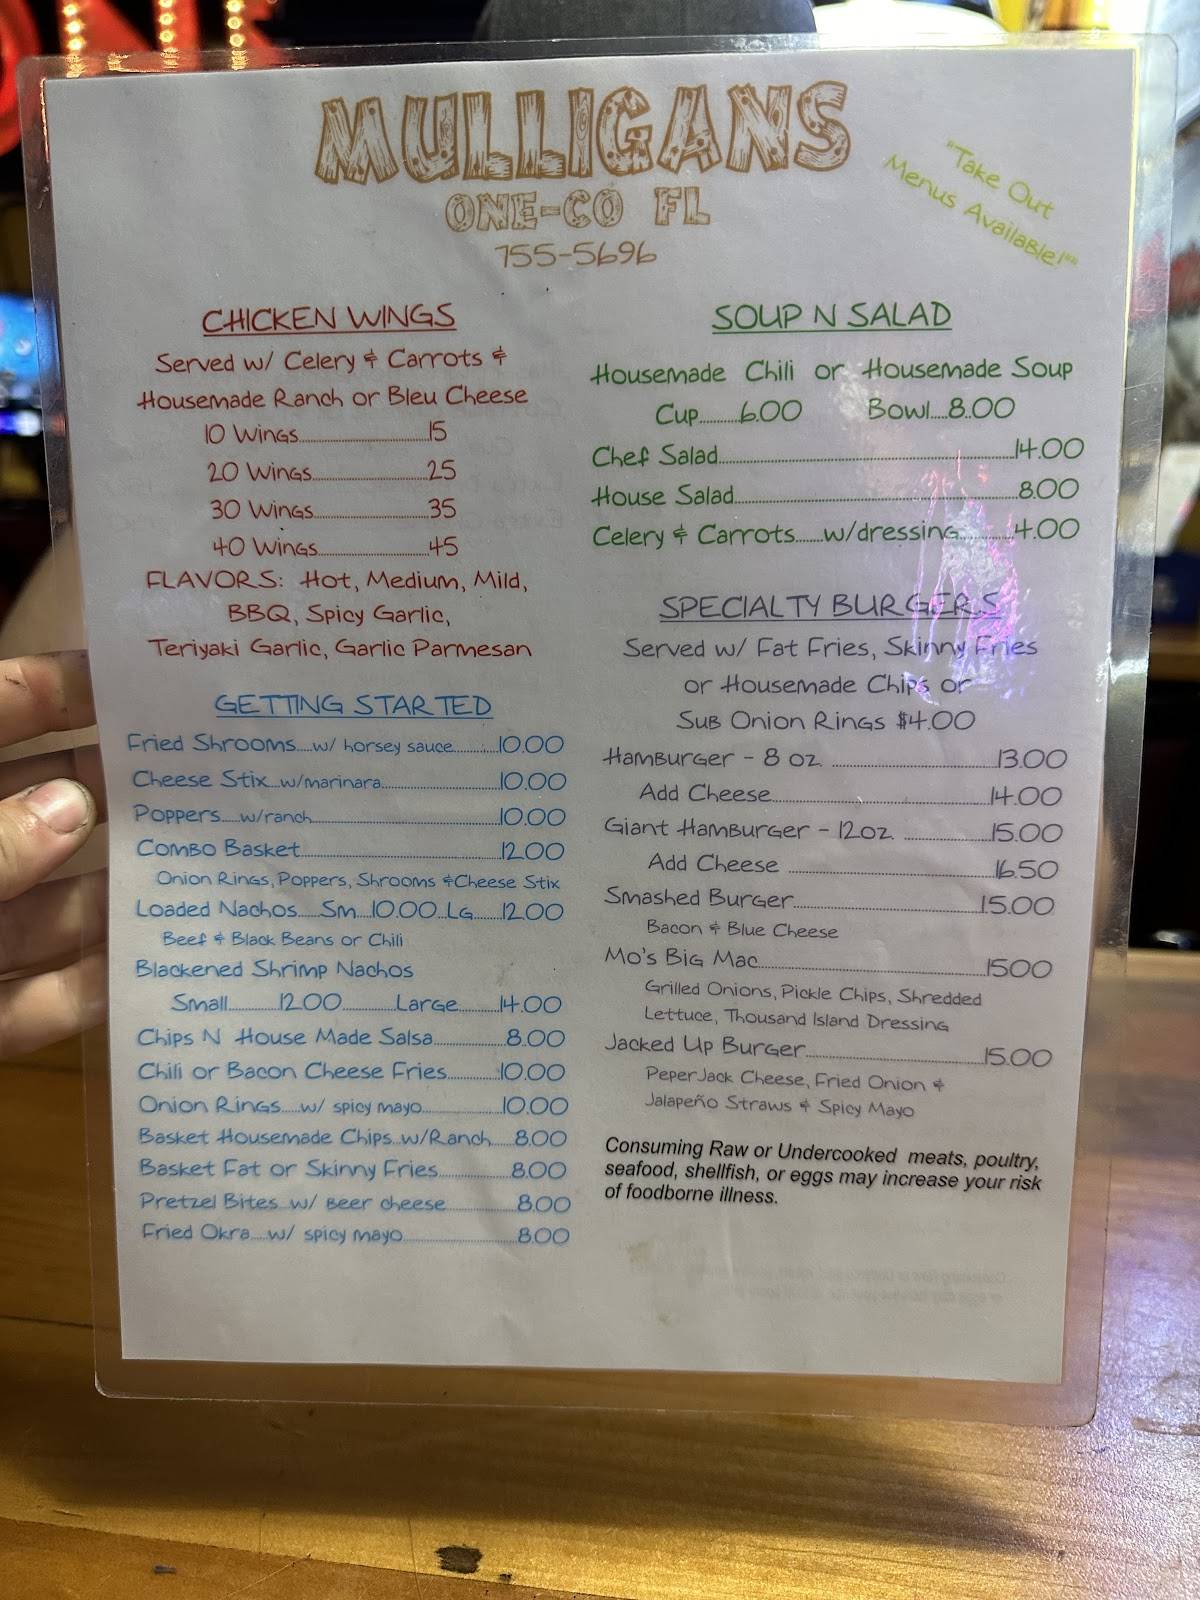 MULLIGANS
ONE-CO FL
755-5696
"Take Out
Menus Available!"
CHICKEN WINGS
Served w/ Celery & Carrots &
Housemade Ranch or Bleu Cheese
10 Wings..........15
20 Wings..........25
30 Wings..........35
40 Wings..........45
FLAVORS: Hot, Medium, Mild,
BBQ, Spicy Garlic,
Teriyaki Garlic, Garlic Parmesan
GETTING STARTED
Fried Shrooms....w/ horsey sauce..........10.00
Cheese Stix...w/marinara..........10.00
Poppers....w/ranch..........10.00
Combo Basket..........12.00
Onion Rings, Poppers, Shrooms & Cheese Stix
Loaded Nachos....Sm...10.00...Lg......12.00
Beef & Black Beans or Chili
Blackened Shrimp Nachos
Small........12.00.........Large.......14.00
Chips N House Made Salsa..........8.00
Chili or Bacon Cheese Fries..........10.00
Onion Rings....w/ spicy mayo..........10.00
Basket Housemade Chips..w/Ranch.....8.00
Basket Fat or Skinny Fries..........8.00
Pretzel Bites..w/ Beer cheese..........8.00
Fried Okra....w/ spicy mayo..........8.00
SOUP N SALAD
Housemade Chili or Housemade Soup
Cup.......6.00 Bowl....8.00
Chef Salad..........14.00
House Salad..........8.00
Celery & Carrots......w/dressing..........4.00
SPECIALTY BURGERS
Served w/ Fat Fries, Skinny Fries
or Housemade Chips or
Sub Onion Rings $4.00
Hamburger - 8 oz. ..........13.00
Add Cheese..........14.00
Giant Hamburger - 12oz. ..........15.00
Add Cheese ..........16.50
Smashed Burger..........15.00
Bacon & Blue Cheese
Mo's Big Mac..........1500
Grilled Onions, Pickle Chips, Shredded
Lettuce, Thousand Island Dressing
Jacked Up Burger..........15.00
PeperJack Cheese, Fried Onion &
Jalapeño Straws & Spicy Mayo
Consuming Raw or Undercooked meats, poultry,
seafood, shellfish, or eggs may increase your risk
of foodborne illness.